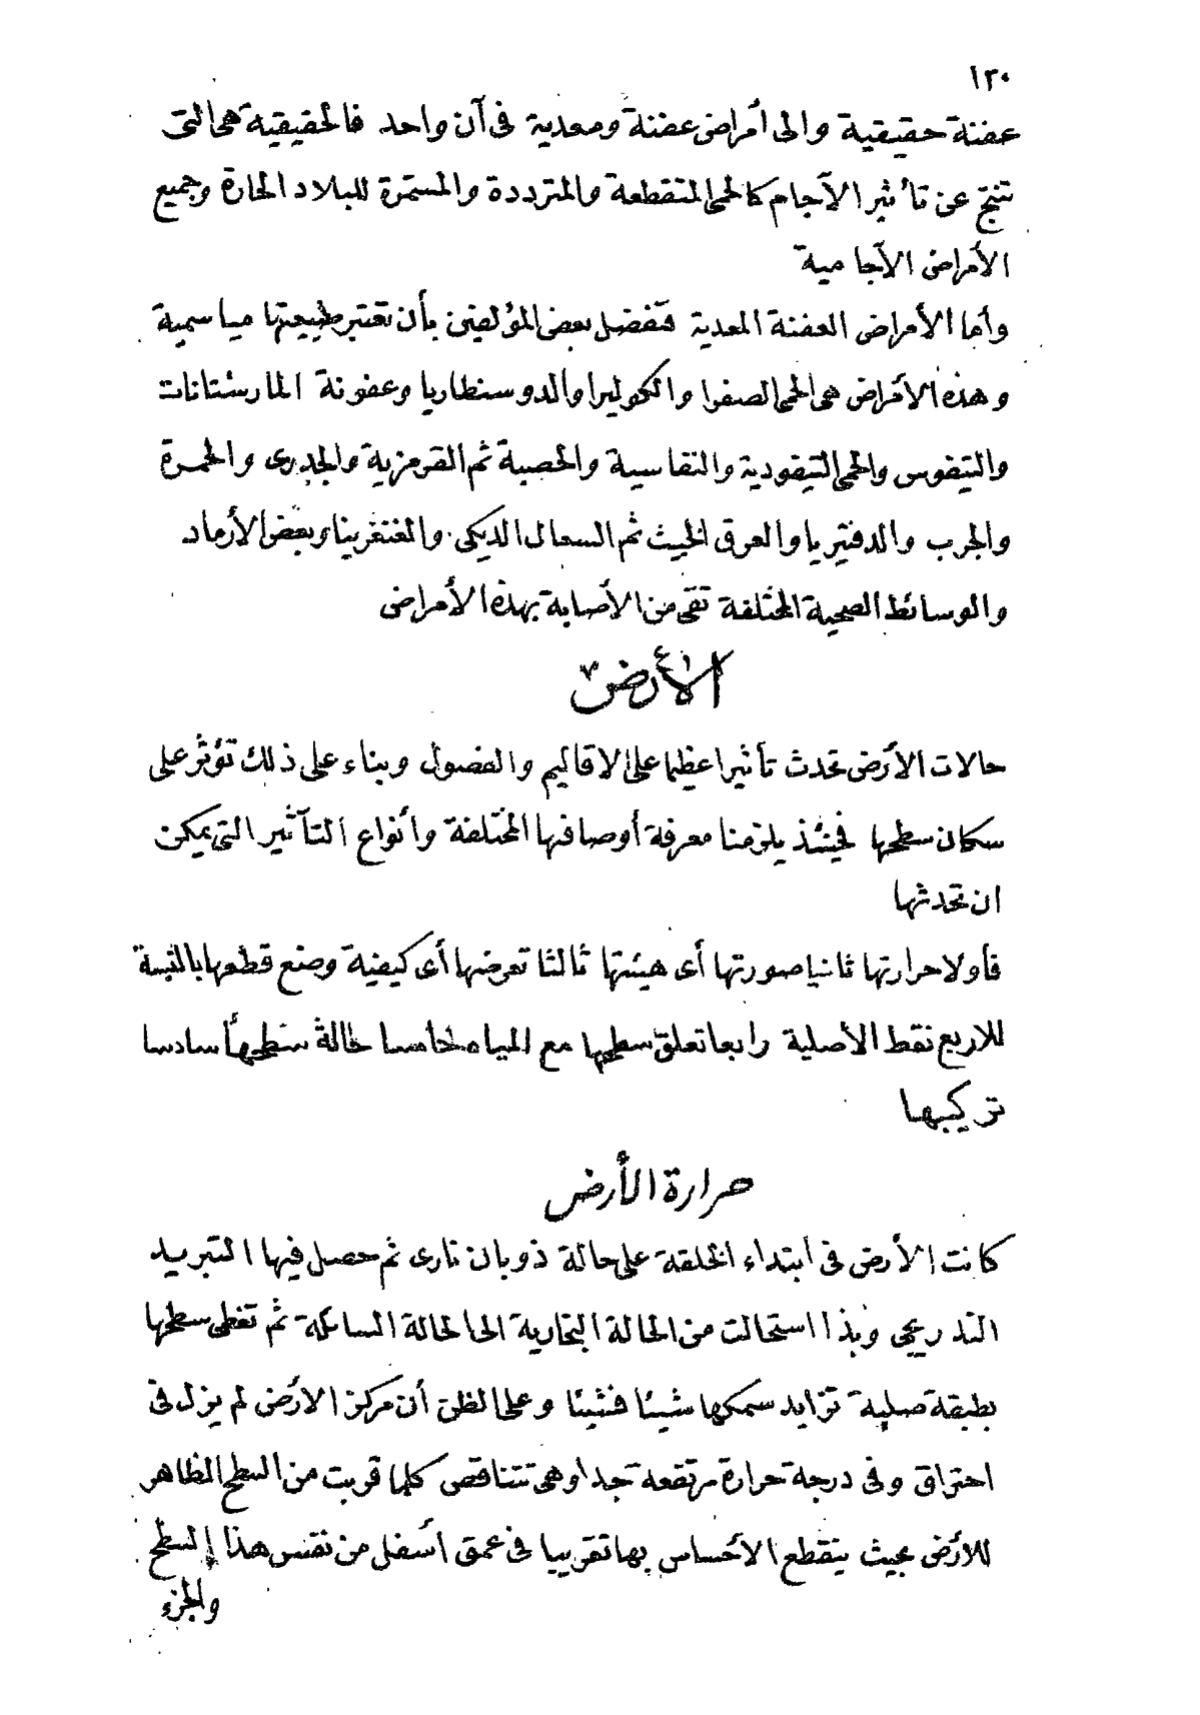 ١٣٠
عفنة حقيقية والى أمراض عفنة ومعدية فى آن واحد فالحقيقية هى التى
تنتج عن تأثير الآجام كالحمى المتقطعة والمترددة والمستمرة للبلاد الحارة وجميع
الأمراض الآجامية
وأما الأمراض العفنة المعدية فتفضل بعض المؤلفين بأن تعتبر طبيعتها مياسمية
وهذه الأمراض هى الحمى الصفرا والكوليرا والدوسنطاريا وعفونة المارستانات
والتيفوس والحمى التيفودية والنفاسية والحصبة ثم القرمزية والجدرى والحمرة
والجرب والدفتيريا والعرق الخبيث ثم السعال الديكى والغنغرينا وبعض الأرماد
والوسائط الصحية المختلفة تقى من الأصابة بهذه الأمراض
الأرض
حالات الأرض تحدث تأثيرا عظيما على الاقاليم والفصول وبناء على ذلك تؤثر على
سكان سطحها فحينئذ يلزمنا معرفة أوصافها المختلفة وأنواع التآثير التى يمكن
ان تحدثها
فأولا حرارتها ثانيا صورتها أى هيئتها ثالثا تعرضها أى كيفية وضع قطعها بالنسبة
للاربع نقط الأصلية رابعا تعلق سطحها مع المياه خامسا حالة سطحها سادسا
تركيبها
حرارة الأرض
كانت الأرض فى ابتداء الخلقة على حالة ذوبان نارى ثم حصل فيها التبريد
التدريجى وبذا استحالت من الحالة البخارية الى الحالة السائلة ثم تغطى سطحها
بطبقة صلبة تزايد سمكها شيئا فشيئا وعلى الظن أن مركز الأرض لم يزل فى
احتراق وفى درجة حرارة مرتفعة جدا وهى تتناقص كلما قربت من السطح الظاهر
للأرض بحيث ينقطع الأحساس بها تقريبا فى عمق أسفل من نفس هذا السطح
والجزء